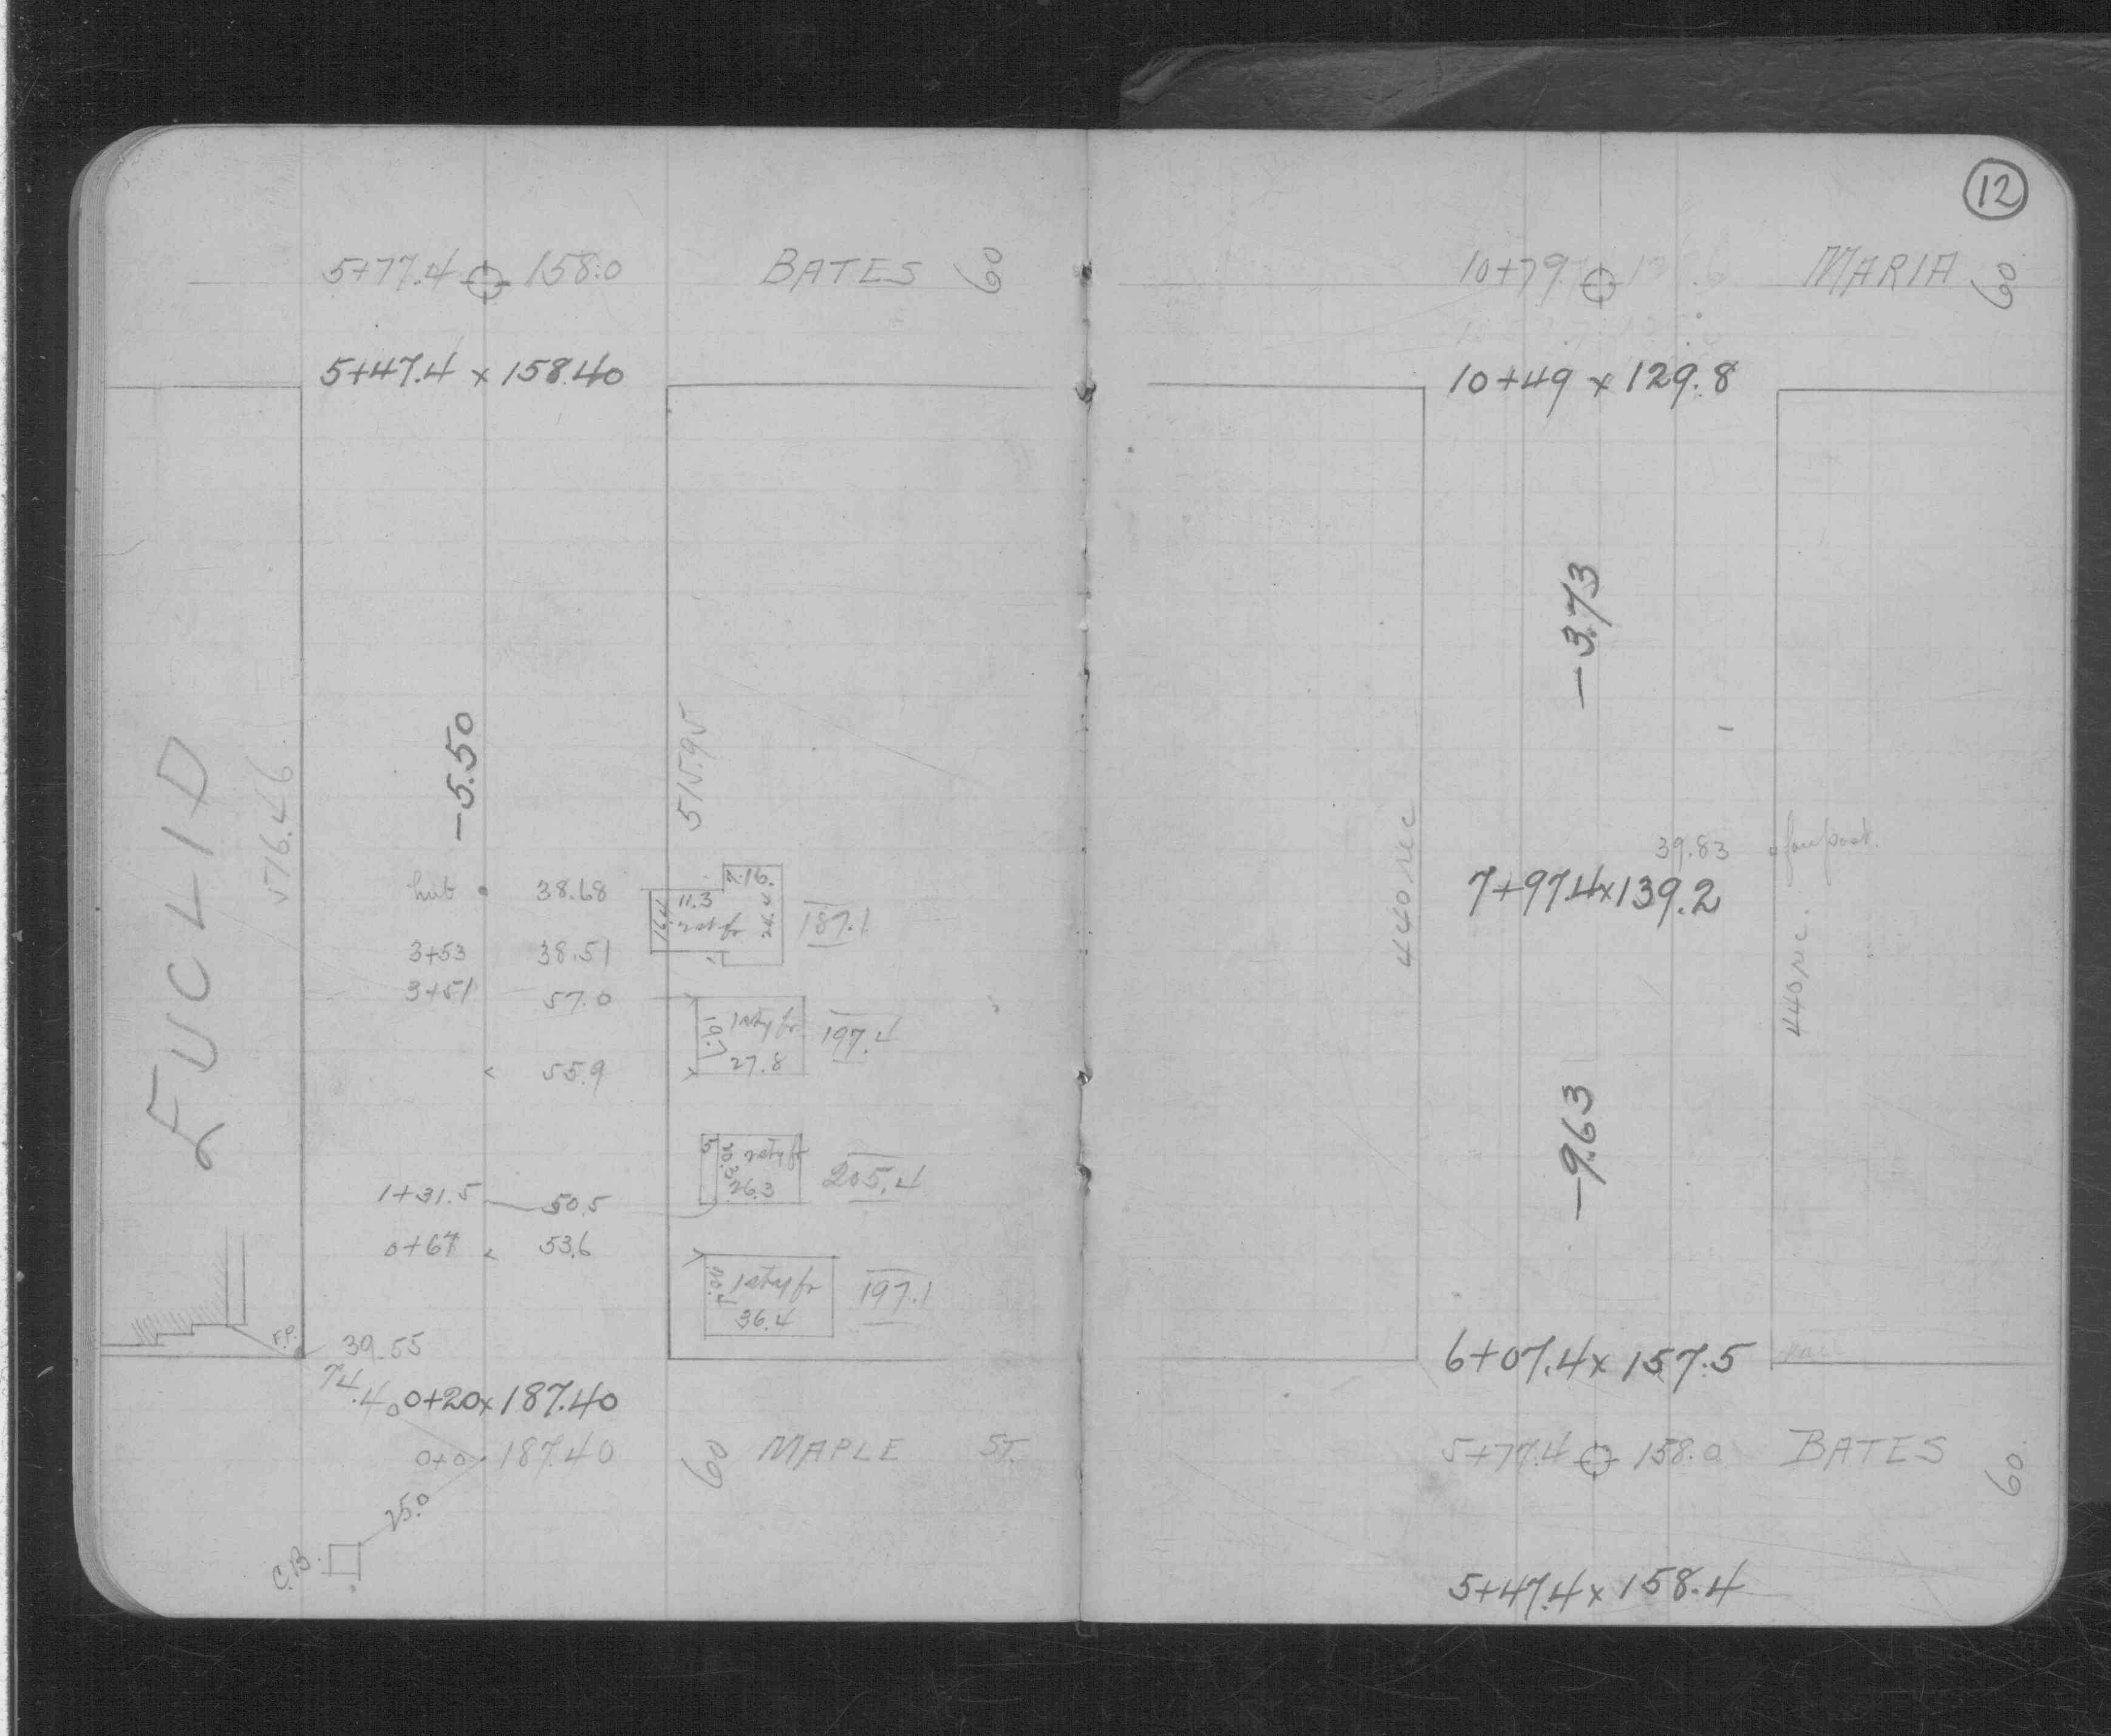 12
5+77.4 158.0 BATES 60
5+47.4 x 158.40
EUCLID
576.46
-5.50
515.95
hub 38.68
7.16.
11.3
16.4
2 st fr
24.4
187.1
3+53 38.51
3+51 57.0
19.1
1 sty fr
27.8
197.4
55.9
5
20.2
2 sty fr
26.3
205.4
1+31.5 50.5
0+67 53.6
1 sty fr
36.4
197.1
F.P.
39.55
74.4
0+20x187.40
0+0 187.40
60 MAPLE ST.
25.0
C.B.
10+79 MARIA 60
10+49 x 129.8
-3.73
440 rec
39.83
7+97.4x139.2
440 rec.
-9.63
6+07.4x 157.5
5+77.4 158.0 BATES 60.
5+47.4x 158.4